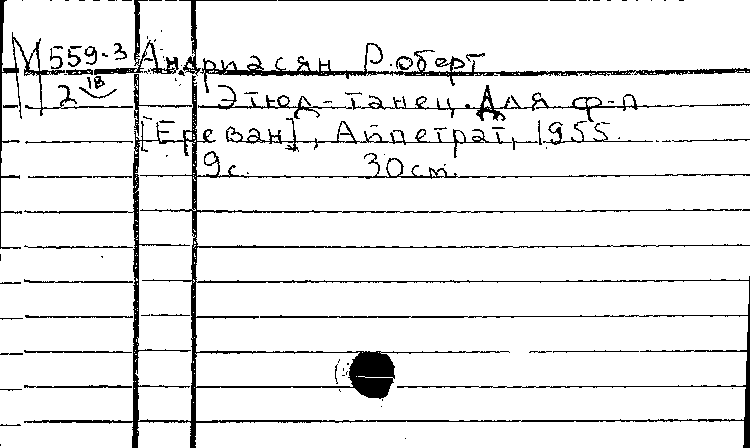 М 559-3 Андриасян, Роберт
2 18 Этюд-танец. Для ф-п.
[Ереван], Айпетрат, 1955.
9с. 30 см.